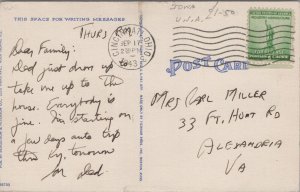 THIS SPACE FOR WRITING MESSAGES
Thurs PM
Dear Family:
Dad just drove up to
take me up to the
house. Everybody is
fine. I'm starting on
a few days auto trip
thru Ky. tomorrow
for Dad
CINCINNATI, OHIO
SEP 17
2 PM
1943
IOWA
U.S.A. £1-50
POST CARD
Mrs Carl Miller
33 Ft. Hunt Rd
Alexandria
VA